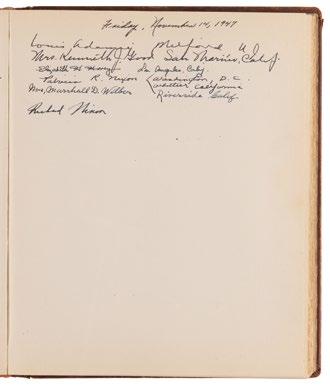 Friday, November 14, 1947
Louis Adamic Milford N.J.
Mrs. Kenneth J. Good San Marino, Calif.
Elizabeth H. Los Angeles, Calif
Patricia R. Nixon Washington, D.C.
Whittier California
Mrs. Marshall D. Wilber Riverside Calif
Richard Nixon